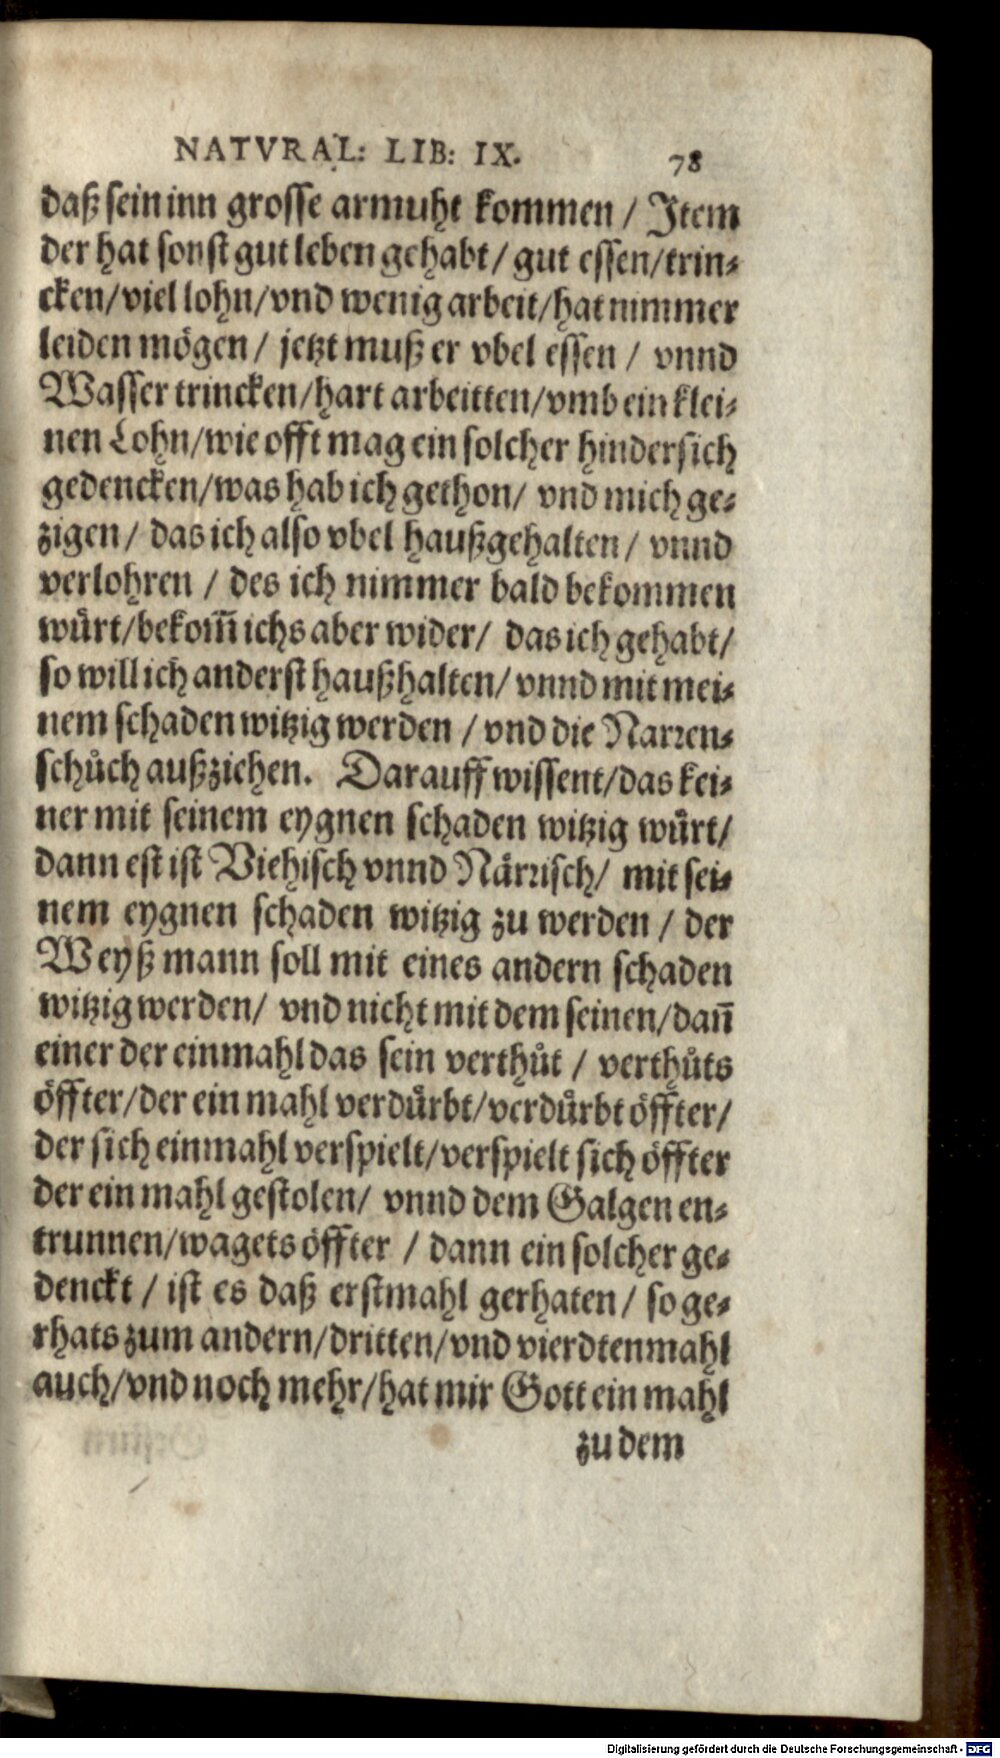 NATVRAL: LIB: IX. 78
daß sein inn grosse armuht kommen / Item
der hat sonst gut leben gehabt / gut essen/trin⸗
cken/viel lohn/vnd wenig arbeit/hat nimmer
leiden mögen / jetzt muß er vbel essen / vnnd
Wasser trincken/hart arbeitten/vmb ein klei⸗
nen Lohn/wie offt mag ein solcher hindersich
gedencken/was hab ich gethon/ vnd mich ge⸗
zigen / das ich also vbel haußgehalten / vnnd
verlohren / des ich nimmer bald bekommen
wuͤrt/bekom̃ ichs aber wider/ das ich gehabt/
so will ich anderst haußhalten/ vnnd mit mei⸗
nem schaden witzig werden / vnd die Narꝛen⸗
schůch außziehen. Darauff wissent/das kei⸗
ner mit seinem eygnen schaden witzig wuͤrt/
dann est ist Viehisch vnnd Närꝛisch/ mit sei⸗
nem eygnen schaden witzig zu werden / der
Weyß mann soll mit eines andern schaden
witzig werden/ vnd nicht mit dem seinen/dañ
einer der einmahl das sein verthůt / verthůts
öffter/der ein mahl verduͤrbt/verduͤrbt öffter/
der sich einmahl verspielt/verspielt sich öffter
der ein mahl gestolen/ vnnd dem Galgen en⸗
trunnen/wagets öffter / dann ein solcher ge⸗
denckt / ist es daß erstmahl gerhaten / so ge⸗
rhats zum andern/dritten/vnd vierdtenmahl
auch/vnd noch mehr/hat mir Gott ein mahl
zu dem
Digitalisierung gefördert durch die Deutsche Forschungsgemeinschaft - DFG